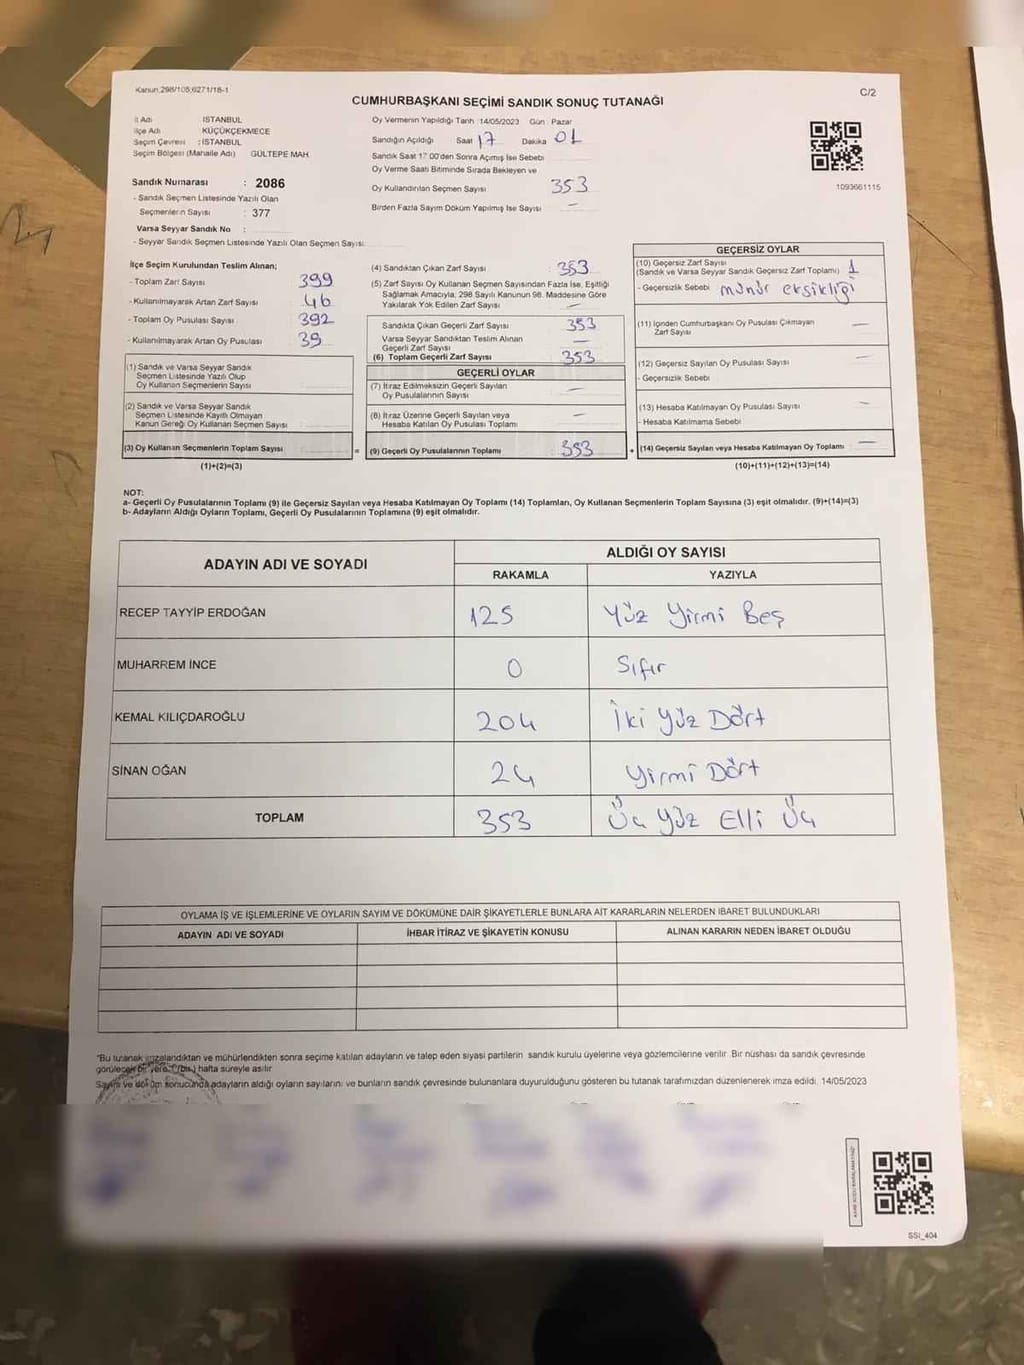 Kanun:298/105;6271/18-1
C/2
CUMHURBAŞKANI SEÇİMİ SANDIK SONUÇ TUTANAĞI
İl Adı İSTANBUL
İlçe Adı KÜÇÜKÇEKMECE
Seçim Çevresi : İSTANBUL
Seçim Bölgesi (Mahalle Adı) GÜLTEPE MAH.
Sandık Numarası : 2086
- Sandık Seçmen Listesinde Yazılı Olan
Seçmenlerin Sayısı : 377
Varsa Seyyar Sandık No :
- Seyyar Sandık Seçmen Listesinde Yazılı Olan Seçmen Sayısı:
Oy Vermenin Yapıldığı Tarih :14/05/2023 Gün : Pazar
Sandığın Açıldığı Saat 17 Dakika 01
Sandık Saat 17:00'den Sonra Açılmış İse Sebebi
Oy Verme Saati Bitiminde Sırada Bekleyen ve
Oy Kullandırılan Seçmen Sayısı 353
Birden Fazla Sayım Döküm Yapılmış İse Sayısı —
1093661115
İlçe Seçim Kurulundan Teslim Alınan;
- Toplam Zarf Sayısı 399
- Kullanılmayarak Artan Zarf Sayısı 46
- Toplam Oy Pusulası Sayısı 392
- Kullanılmayarak Artan Oy Pusulası 39
(1) Sandık ve Varsa Seyyar Sandık
Seçmen Listesinde Yazılı Olup
Oy Kullanan Seçmenlerin Sayısı
(2) Sandık ve Varsa Seyyar Sandık
Seçmen Listesinde Kayıtlı Olmayan
Kanun Gereği Oy Kullanan Seçmen Sayısı
(3) Oy Kullanan Seçmenlerin Toplam Sayısı
(1)+(2)=(3)
(4) Sandıktan Çıkan Zarf Sayısı 353
(5) Zarf Sayısı Oy Kullanan Seçmen Sayısından Fazla İse, Eşitliği
Sağlamak Amacıyla; 298 Sayılı Kanunun 98. Maddesine Göre
Yakılarak Yok Edilen Zarf Sayısı —
Sandıkta Çıkan Geçerli Zarf Sayısı 353
Varsa Seyyar Sandıktan Teslim Alınan
Geçerli Zarf Sayısı —
(6) Toplam Geçerli Zarf Sayısı 353
GEÇERLİ OYLAR
(7) İtiraz Edilmeksizin Geçerli Sayılan
Oy Pusulalarının Sayısı —
(8) İtiraz Üzerine Geçerli Sayılan veya
Hesaba Katılan Oy Pusulası Toplamı —
= (9) Geçerli Oy Pusulalarının Toplamı 353
GEÇERSİZ OYLAR
(10) Geçersiz Zarf Sayısı
(Sandık ve Varsa Seyyar Sandık Geçersiz Zarf Toplamı) 1
- Geçersizlik Sebebi mühür eksikliği
(11) İçinden Cumhurbaşkanı Oy Pusulası Çıkmayan
Zarf Sayısı —
(12) Geçersiz Sayılan Oy Pusulası Sayısı —
- Geçersizlik Sebebi
(13) Hesaba Katılmayan Oy Pusulası Sayısı —
- Hesaba Katılmama Sebebi
+ (14) Geçersiz Sayılan veya Hesaba Katılmayan Oy Toplamı —
(10)+(11)+(12)+(13)=(14)
NOT:
a- Geçerli Oy Pusulalarının Toplamı (9) ile Geçersiz Sayılan veya Hesaba Katılmayan Oy Toplamı (14) Toplamları, Oy Kullanan Seçmenlerin Toplam Sayısına (3) eşit olmalıdır. (9)+(14)=(3)
b- Adayların Aldığı Oyların Toplamı, Geçerli Oy Pusulalarının Toplamına (9) eşit olmalıdır.
ADAYIN ADI VE SOYADI
ALDIĞI OY SAYISI
RAKAMLA YAZIYLA
RECEP TAYYİP ERDOĞAN 125 Yüz Yirmi Beş
MUHARREM İNCE 0 Sıfır
KEMAL KILIÇDAROĞLU 204 İki Yüz Dört
SİNAN OĞAN 24 Yirmi Dört
TOPLAM 353 Üç Yüz Elli Üç
OYLAMA İŞ VE İŞLEMLERİNE VE OYLARIN SAYIM VE DÖKÜMÜNE DAİR ŞİKAYETLERLE BUNLARA AİT KARARLARIN NELERDEN İBARET BULUNDUKLARI
ADAYIN ADI VE SOYADI İHBAR İTİRAZ VE ŞİKAYETİN KONUSU ALINAN KARARIN NEDEN İBARET OLDUĞU
*Bu tutanak imzalandıktan ve mühürlendikten sonra seçime katılan adayların ve talep eden siyasi partilerin sandık kurulu üyelerine veya gözlemcilerine verilir. Bir nüshası da sandık çevresinde
görülecek bir yere 1 (bir) hafta süreyle asılır
Sayım ve döküm sonucunda adayların aldığı oyların sayılarını ve bunların sandık çevresinde bulunanlara duyurulduğunu gösteren bu tutanak tarafımızdan düzenlenerek imza edildi. 14/05/2023
SSİ_404